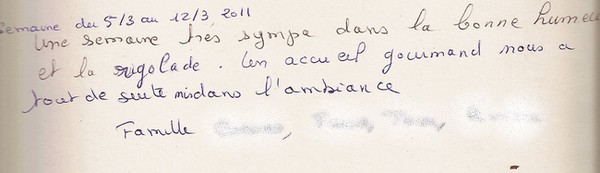 Semaine du 5/3 au 12/3 2011
Une semaine très sympa dans la bonne humeu
et la rigolade. Un accueil gourmand nous a
tout de suite mis dans l'ambiance
Famille